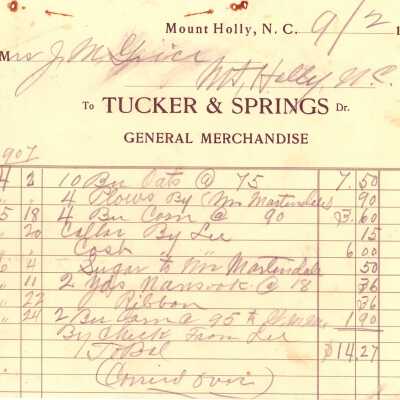 Mount Holly, N. C. 9/2 1
Mrs J. M. Price
Mt, Holly, N.C.
To TUCKER & SPRINGS Dr.
GENERAL MERCHANDISE
1907
4 2 10 Bu Oats @ 75 7.50
" " 4 Plows By Mr Martindale 90
5 18 4 Bu Corn @ 90 3.60
" 20 Collar By Lee 15
" " Cash 6 00
6 4 Sugar to Mr Martindale 50
" 11 2 yds Nansook @ 18 36
" 22 Ribbon 36
" 24 2 Bu Corn @ 95 1 90
By Check From Lee
To Bal $14.27
(Coming over)